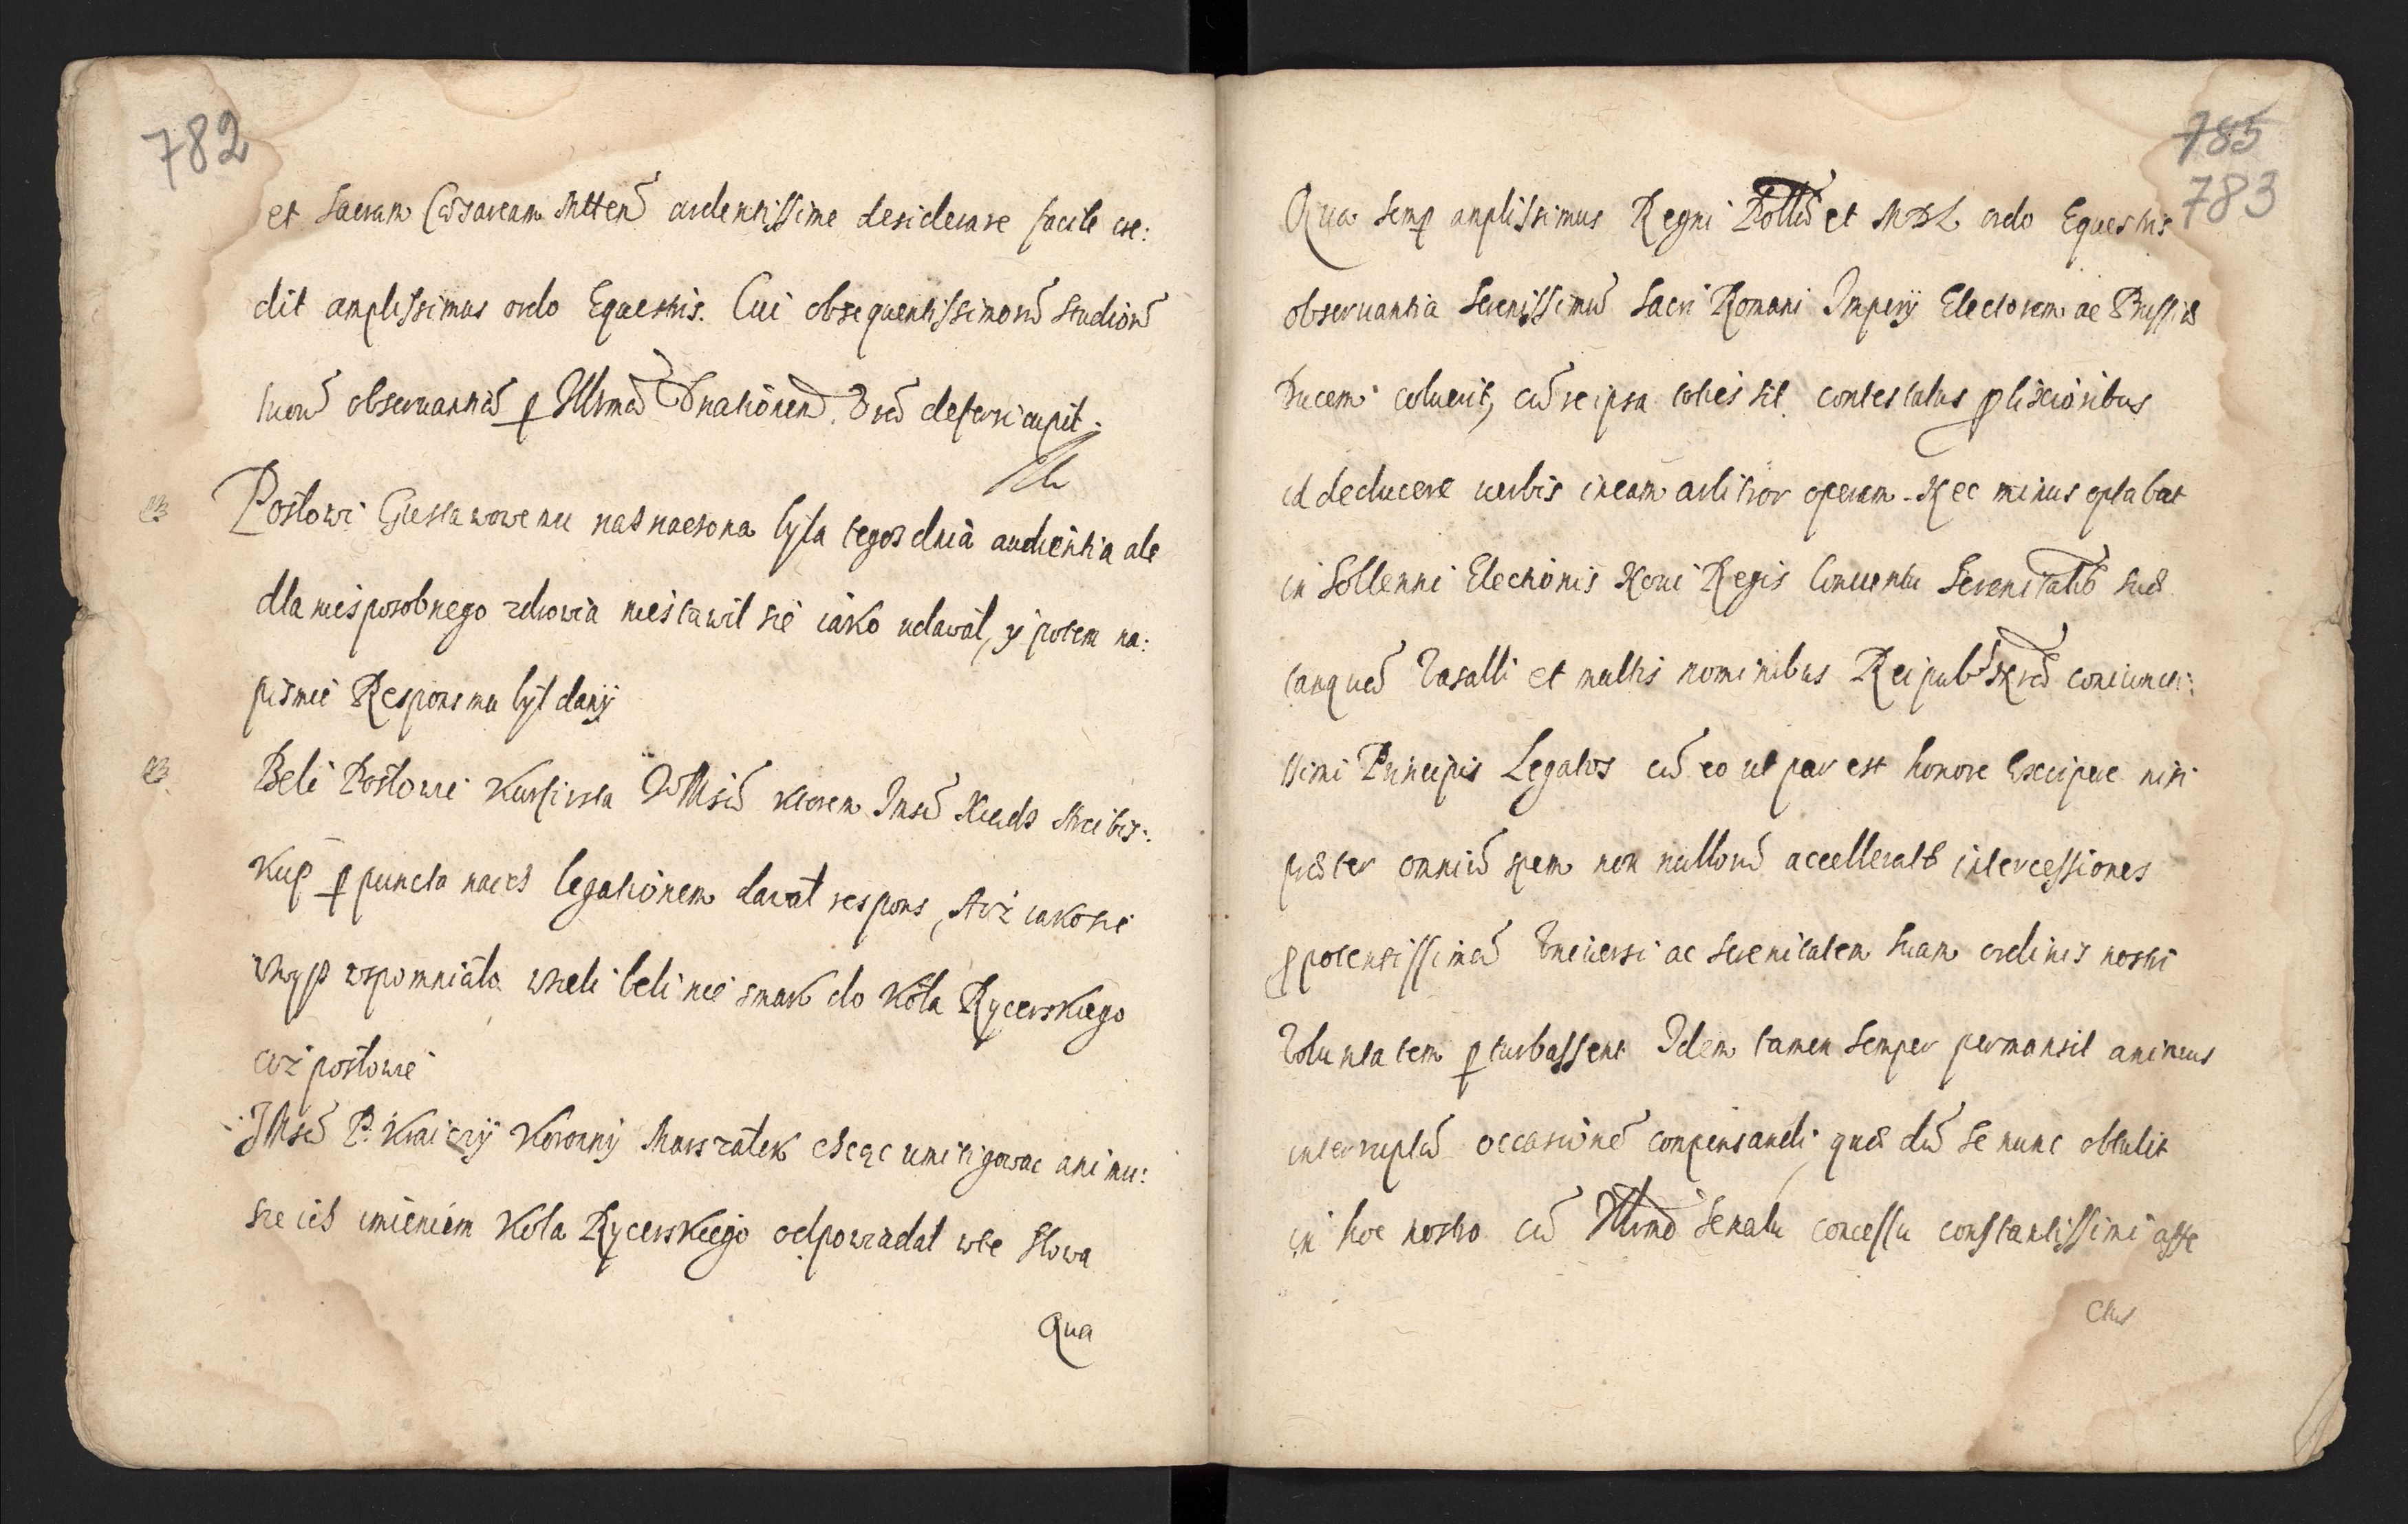 782
et Sacram Cæsaream Mtten̄ ardentissime desiderare facile cre:
dit amplissimus ordo Equestris. Cui obsequentissimorū studiorū
suorū obseruantiā p Illrmā Dnationem Vrā deferri cupit.
Posłowi Gustawowemu naznaczona była tegosz dnia audientia ale
dla niesposobnego zdrowia niestawił sie iako udawał, y potem na:
pismie Respons mu był dany
Beli Posłowie Kurfirsta JoMsci ktorem Jmsc Xiadz Arcibis:
kup p puncta na ich legationem dawał respons, Asz iakosie
wyzy wspomniało wzieli beli nie smak do Koła Rycerskiego
cisz posłowie
JMsc P: Kraiczy Koronny Marszałek chcąc umitigowac animu:
sze ich imieniem Koła Rycerskiego odpowiadał wte słowa
Qua
785
783
Qua semp amplissimus Regni Pollæ et MDL ordo Equestris
obseruantia Serenissimū Sacri Romani Imperÿ Electorem ac Prussiæ
Ducem coluerit, cū reipsa toties sit contestatus plixioribus
id deducere uerbis ineam arbitror operam. Nec minus optabat
in Sollenni Electionis Noui Regis Conuentu Serenitatis suæ
tanquā Vasalli et multis nominibus Reipub Nræ coniuncti:
ssimi Principis Legatos cū eo ut par est honore Excipere nisi
præter omniū spem non nullorū accelleratæ intercessiones
ppotentissimā Vniuersi ac Serenitatem suam ordinis nostri
Voluntatem pturbassent Idem tamen semper permansit animus
interruptā occasionē conpensandi, quæ dū se nunc obtulit
in hoc nostro cū Illrmo Senatu concessu constantissimi affe
ctus